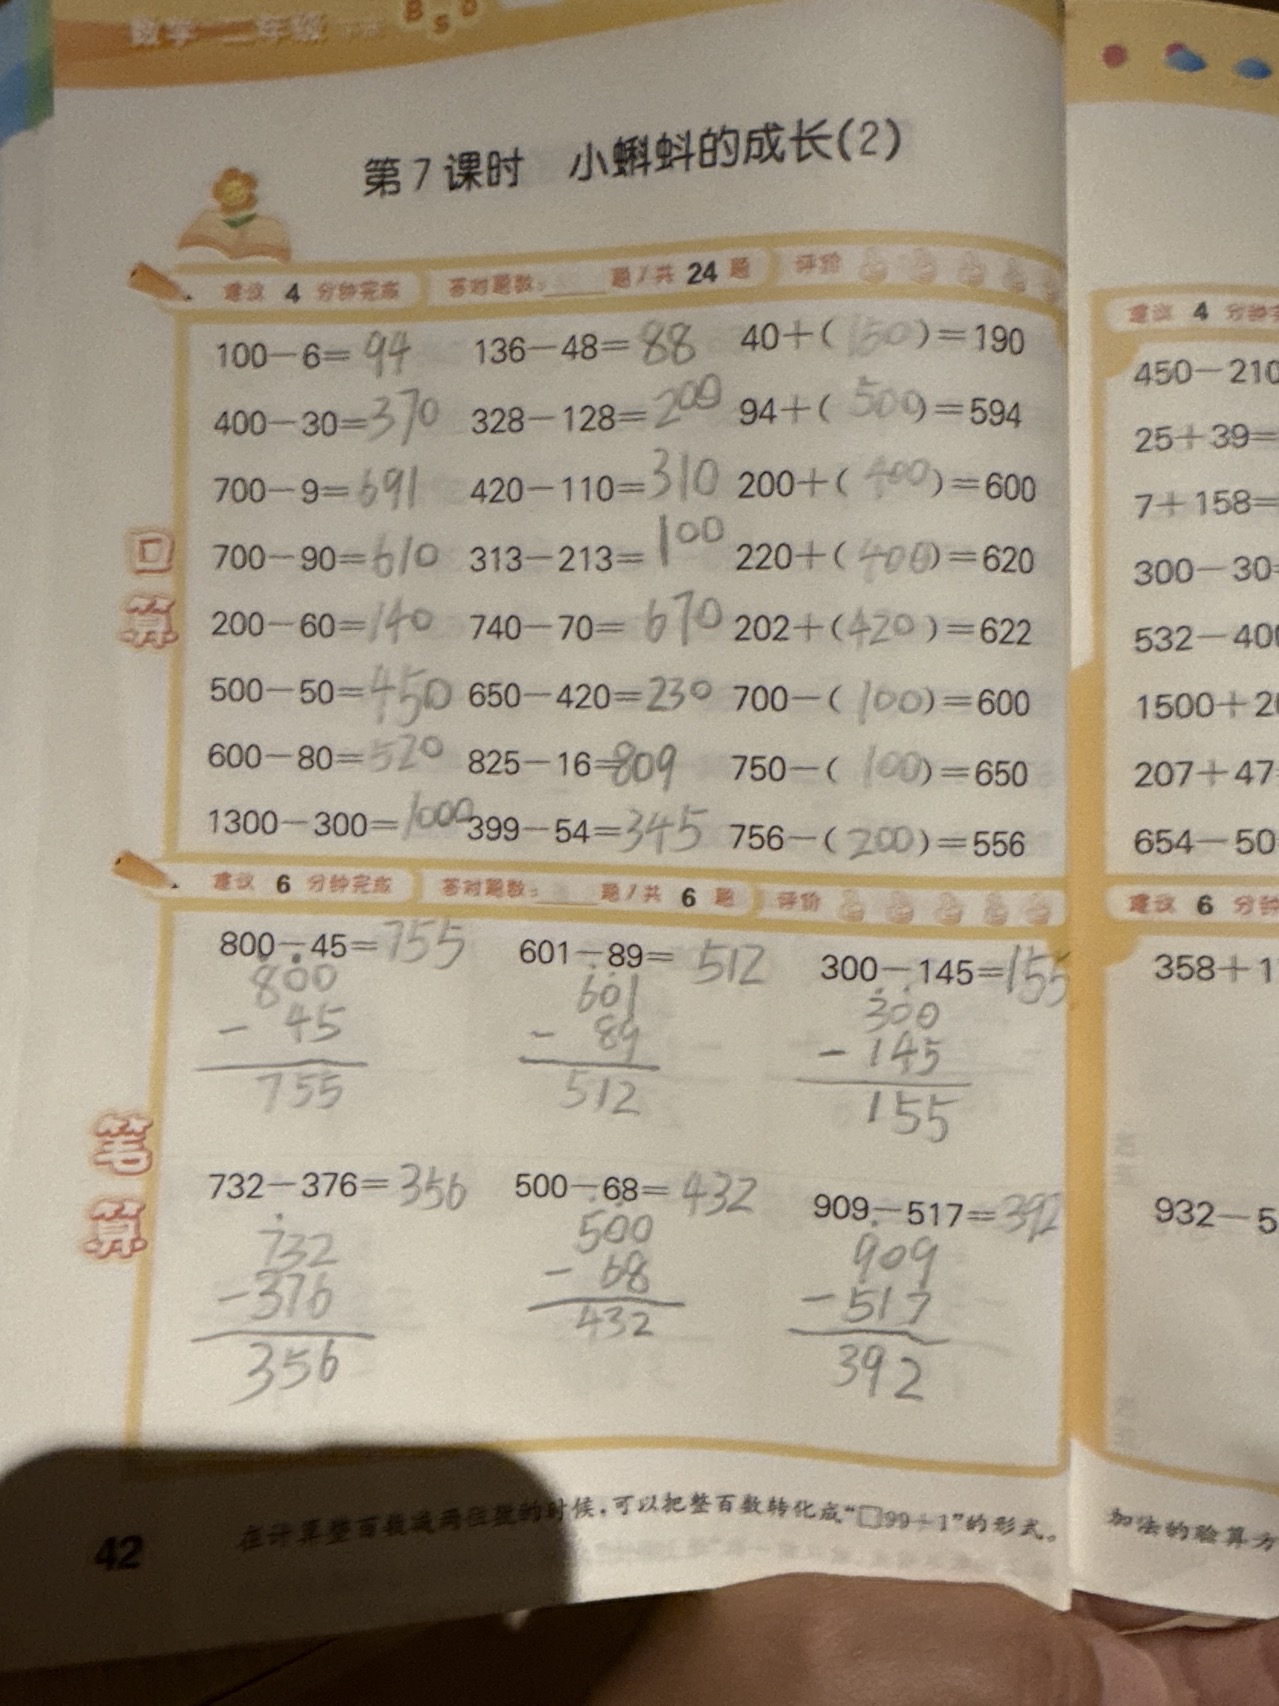 数学 二年级 下册 BSD
第7课时 小蝌蚪的成长(2)
建议 4 分钟完成 答对题数:____题/共 24 题 评价
口算
100-6=94 136-48=88 40+(150)=190
400-30=370 328-128=200 94+(500)=594
700-9=691 420-110=310 200+(400)=600
700-90=610 313-213=100 220+(400)=620
200-60=140 740-70=670 202+(420)=622
500-50=450 650-420=230 700-(100)=600
600-80=520 825-16=809 750-(100)=650
1300-300=1000 399-54=345 756-(200)=556
建议 6 分钟完成 答对题数:____题/共 6 题 评价
笔算
800-45=755 601-89=512 300-145=155
800 601 300
- 45 - 89 -145
755 512 155
732-376=356 500-68=432 909-517=392
732 500 909
-376 - 68 -517
356 432 392
42 在计算整百数减两位数的时候,可以把整百数转化成“□99+1”的形式。
建议 4 分钟
450-210
25+39=
7+158=
300-30=
532-40
1500+2
207+47
654-50
建议 6 分钟
358+1
932-5
加法的验算方